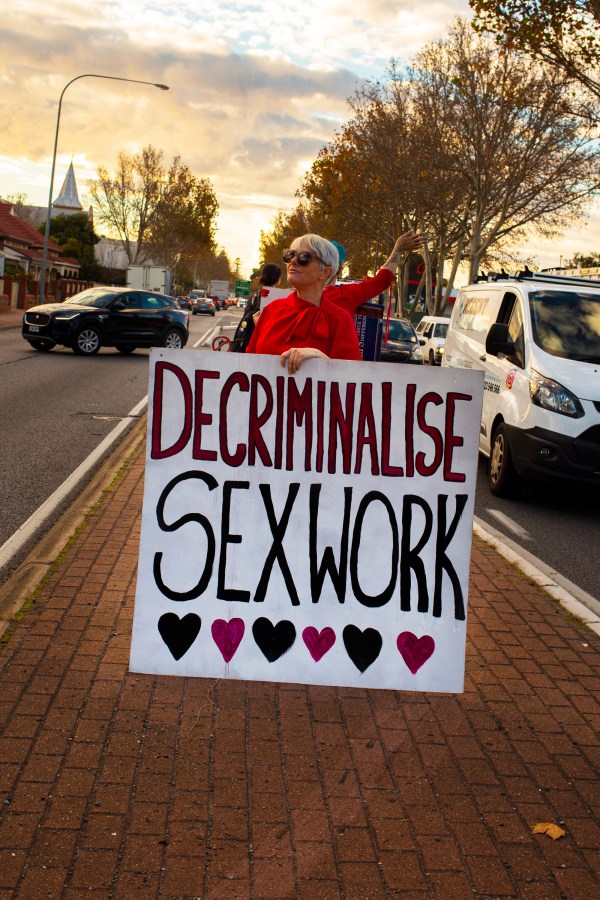 DECRIMINALISE
SEX WORK